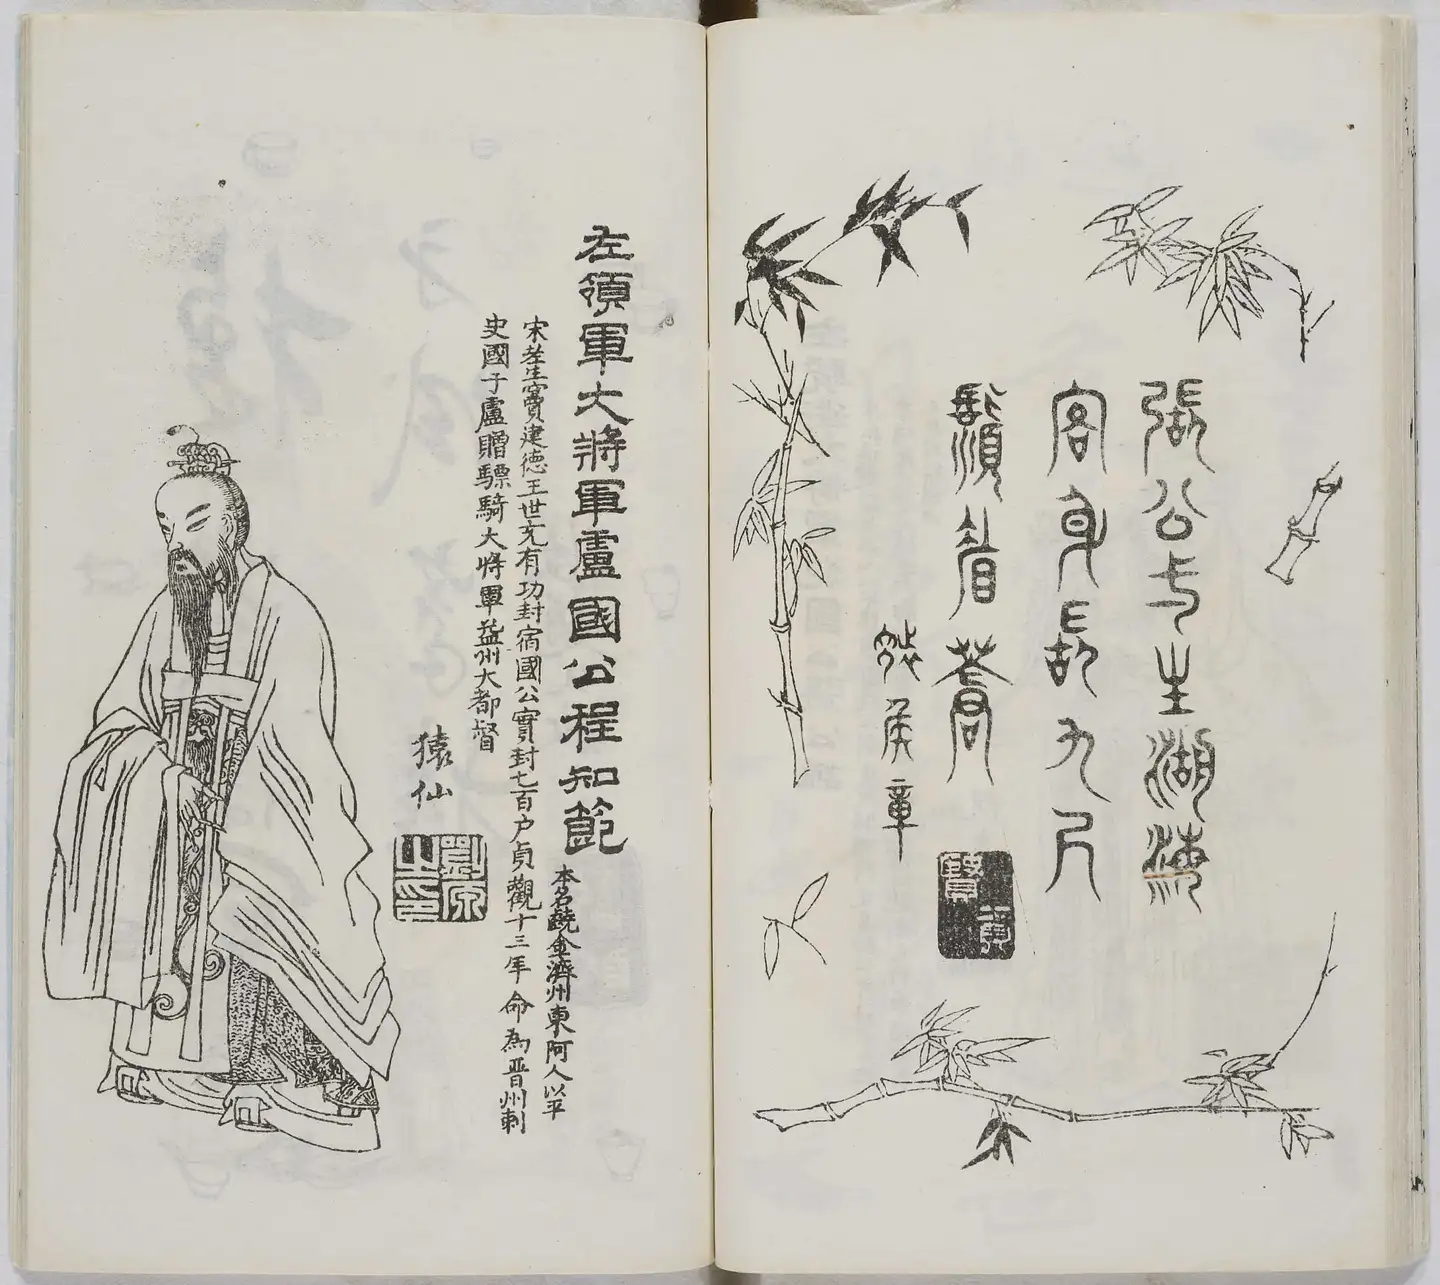 張公一生湖海
客身長九尺
鬚眉蒼
左領軍大將軍盧國公程知節
本名饒金濟州東阿人以平
宋荃生竇建德王世充有功封宿國公實封七百户貞觀十三年命為晋州刺
史國子盧贈驃騎大將軍益州大都督
猿仙
劉源之印